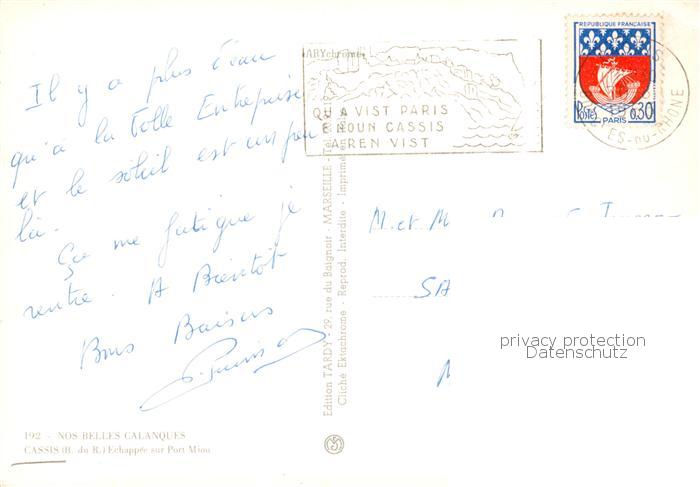 Il y a plus d'eau
qu'à la Folle Entreprise
et le soleil est un peu
là.
Ça me fatigue je
rentre. A Bientôt
Bons Baisers
192 - NOS BELLES CALANQUES
CASSIS (B. du R.) Echappée sur Port Miou
Edition TARDY - 29, rue du Baignoir - MARSEILLE - Tél.
Cliché Ektachrome - Reprod. Interdite - Imprimé
ARYchrome
QU A VIST PARIS
E NOUN CASSIS
A REN VIST
REPUBLIQUE FRANÇAISE
Postes 0,30
PARIS
DU-RHONE
M. et M
SA
privacy protection
Datenschutz